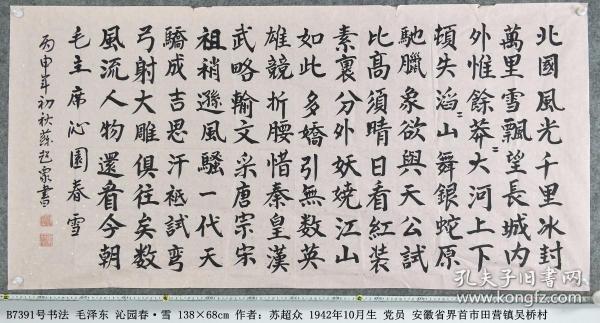 北國風光千里冰封
萬里雪飄望長城內
外惟餘莽〻大河上下
頓失滔〻山舞銀蛇原
馳臘象欲與天公試
比高須晴日看紅裝
素裹分外妖娆江山
如此多嬌引無数英
雄競折腰惜秦皇漢
武略輸文采唐宗宋
祖稍遜風騷一代天
驕成吉思汗祗試彎
弓射大雕俱往矣数
風流人物還看今朝
毛主席沁園春雪
丙申年初秋蘇超衆書
B7391号书法 毛泽东 沁园春·雪 138×68cm 作者：苏超众 1942年10月生 党员 安徽省界首市田营镇吴桥村